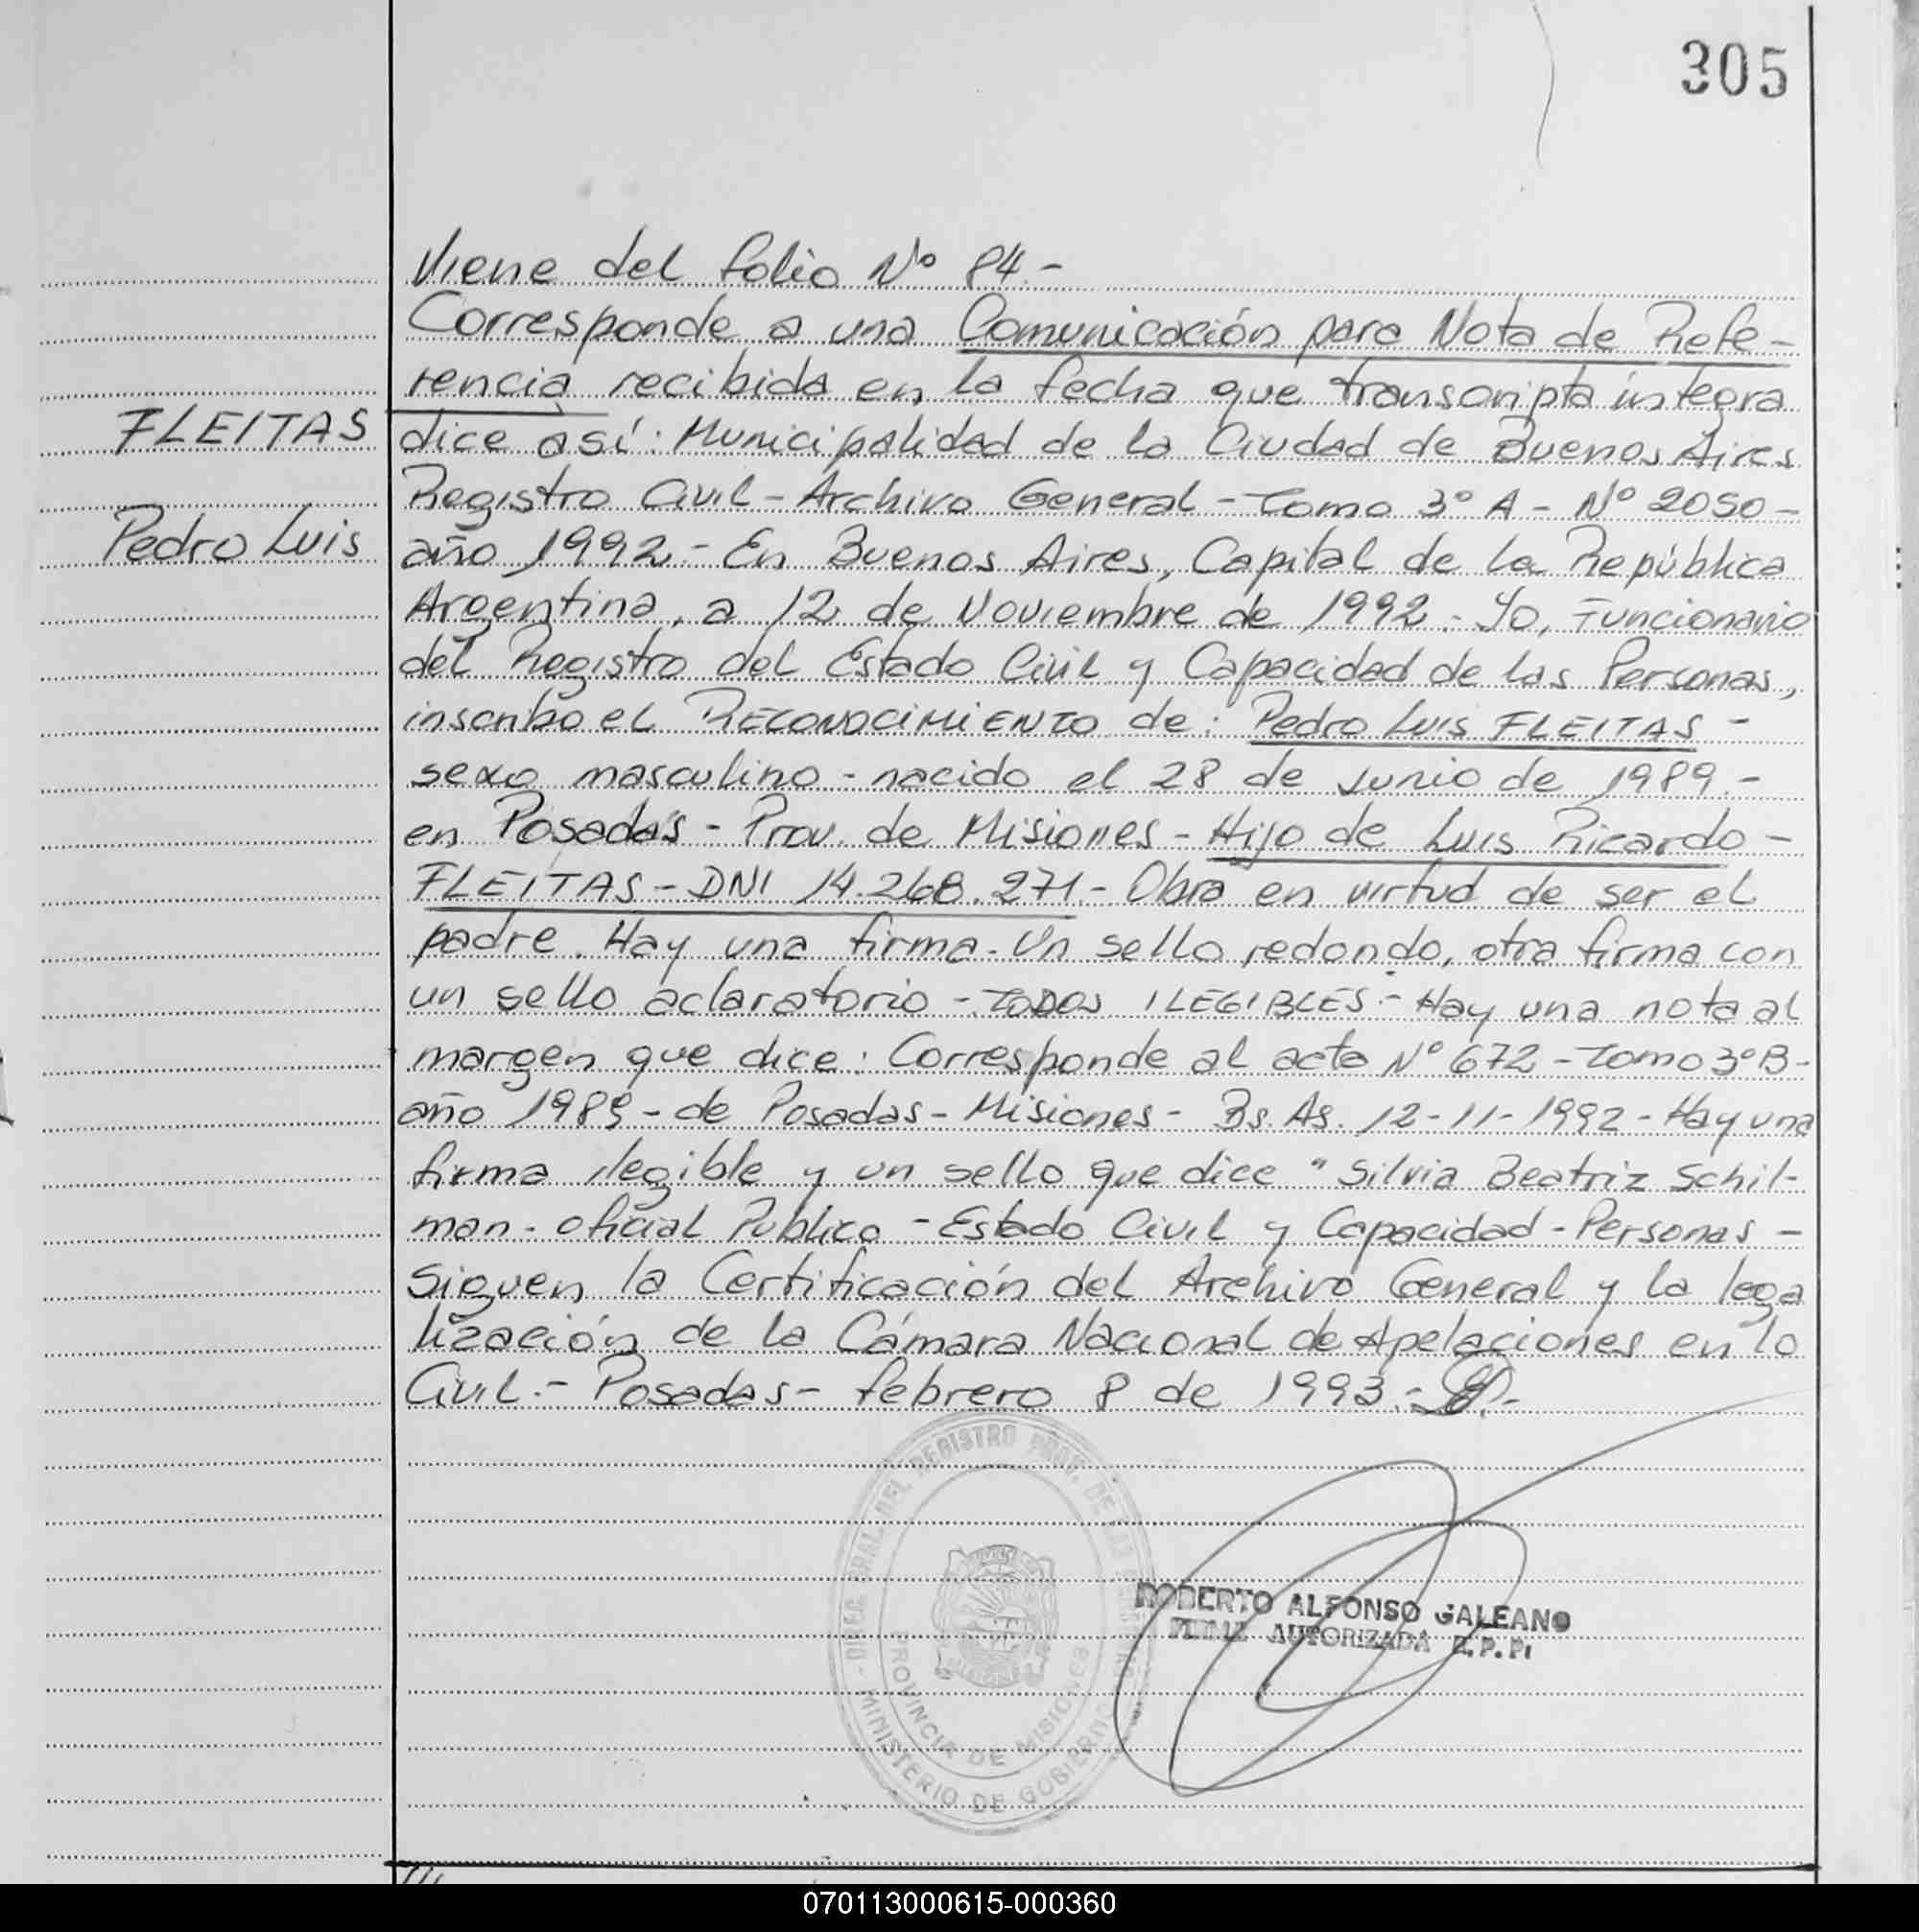 305
Viene del folio Nº 84.-
Corresponde a una Comunicación para Nota de Refe-
rencia recibida en la fecha que transcripta íntegra
FLEITAS
dice así: Municipalidad de la Ciudad de Buenos Aires
Registro Civil - Archivo General - Tomo 3º A - Nº 2050 -
Pedro Luis
año 1992.- En Buenos Aires, Capital de la República
Argentina, a 12 de Noviembre de 1992.- Yo, Funcionario
del Registro del Estado Civil y Capacidad de las Personas,
inscribo el RECONOCIMIENTO de: Pedro Luis FLEITAS -
sexo masculino - nacido el 28 de Junio de 1989.-
en Posadas - Prov. de Misiones - Hijo de Luis Ricardo -
FLEITAS - DNI 14.268.271.- Obra en virtud de ser el
padre. Hay una firma. Un sello redondo, otra firma con
un sello aclaratorio - TODOS ILEGIBLES.- Hay una nota al
margen que dice: Corresponde al acta Nº 672 - Tomo 3º B -
año 1989 - de Posadas - Misiones - Bs. As. 12-11-1992 - Hay una
firma ilegible y un sello que dice "Silvia Beatriz Schil-
man - Oficial Publico - Estado Civil y Capacidad - Personas -
Siguen la Certificación del Archivo General y la lega
lización de la Cámara Nacional de Apelaciones en lo
Civil.- Posadas - febrero 8 de 1993.-
DIREC. GRAL. DEL REGISTRO PROV. DE LAS PERSONAS
MINISTERIO DE GOBIERNO
PROVINCIA DE MISIONES
ROBERTO ALFONSO GALEANO
AUTORIZADA R.P.P.
070113000615-000360